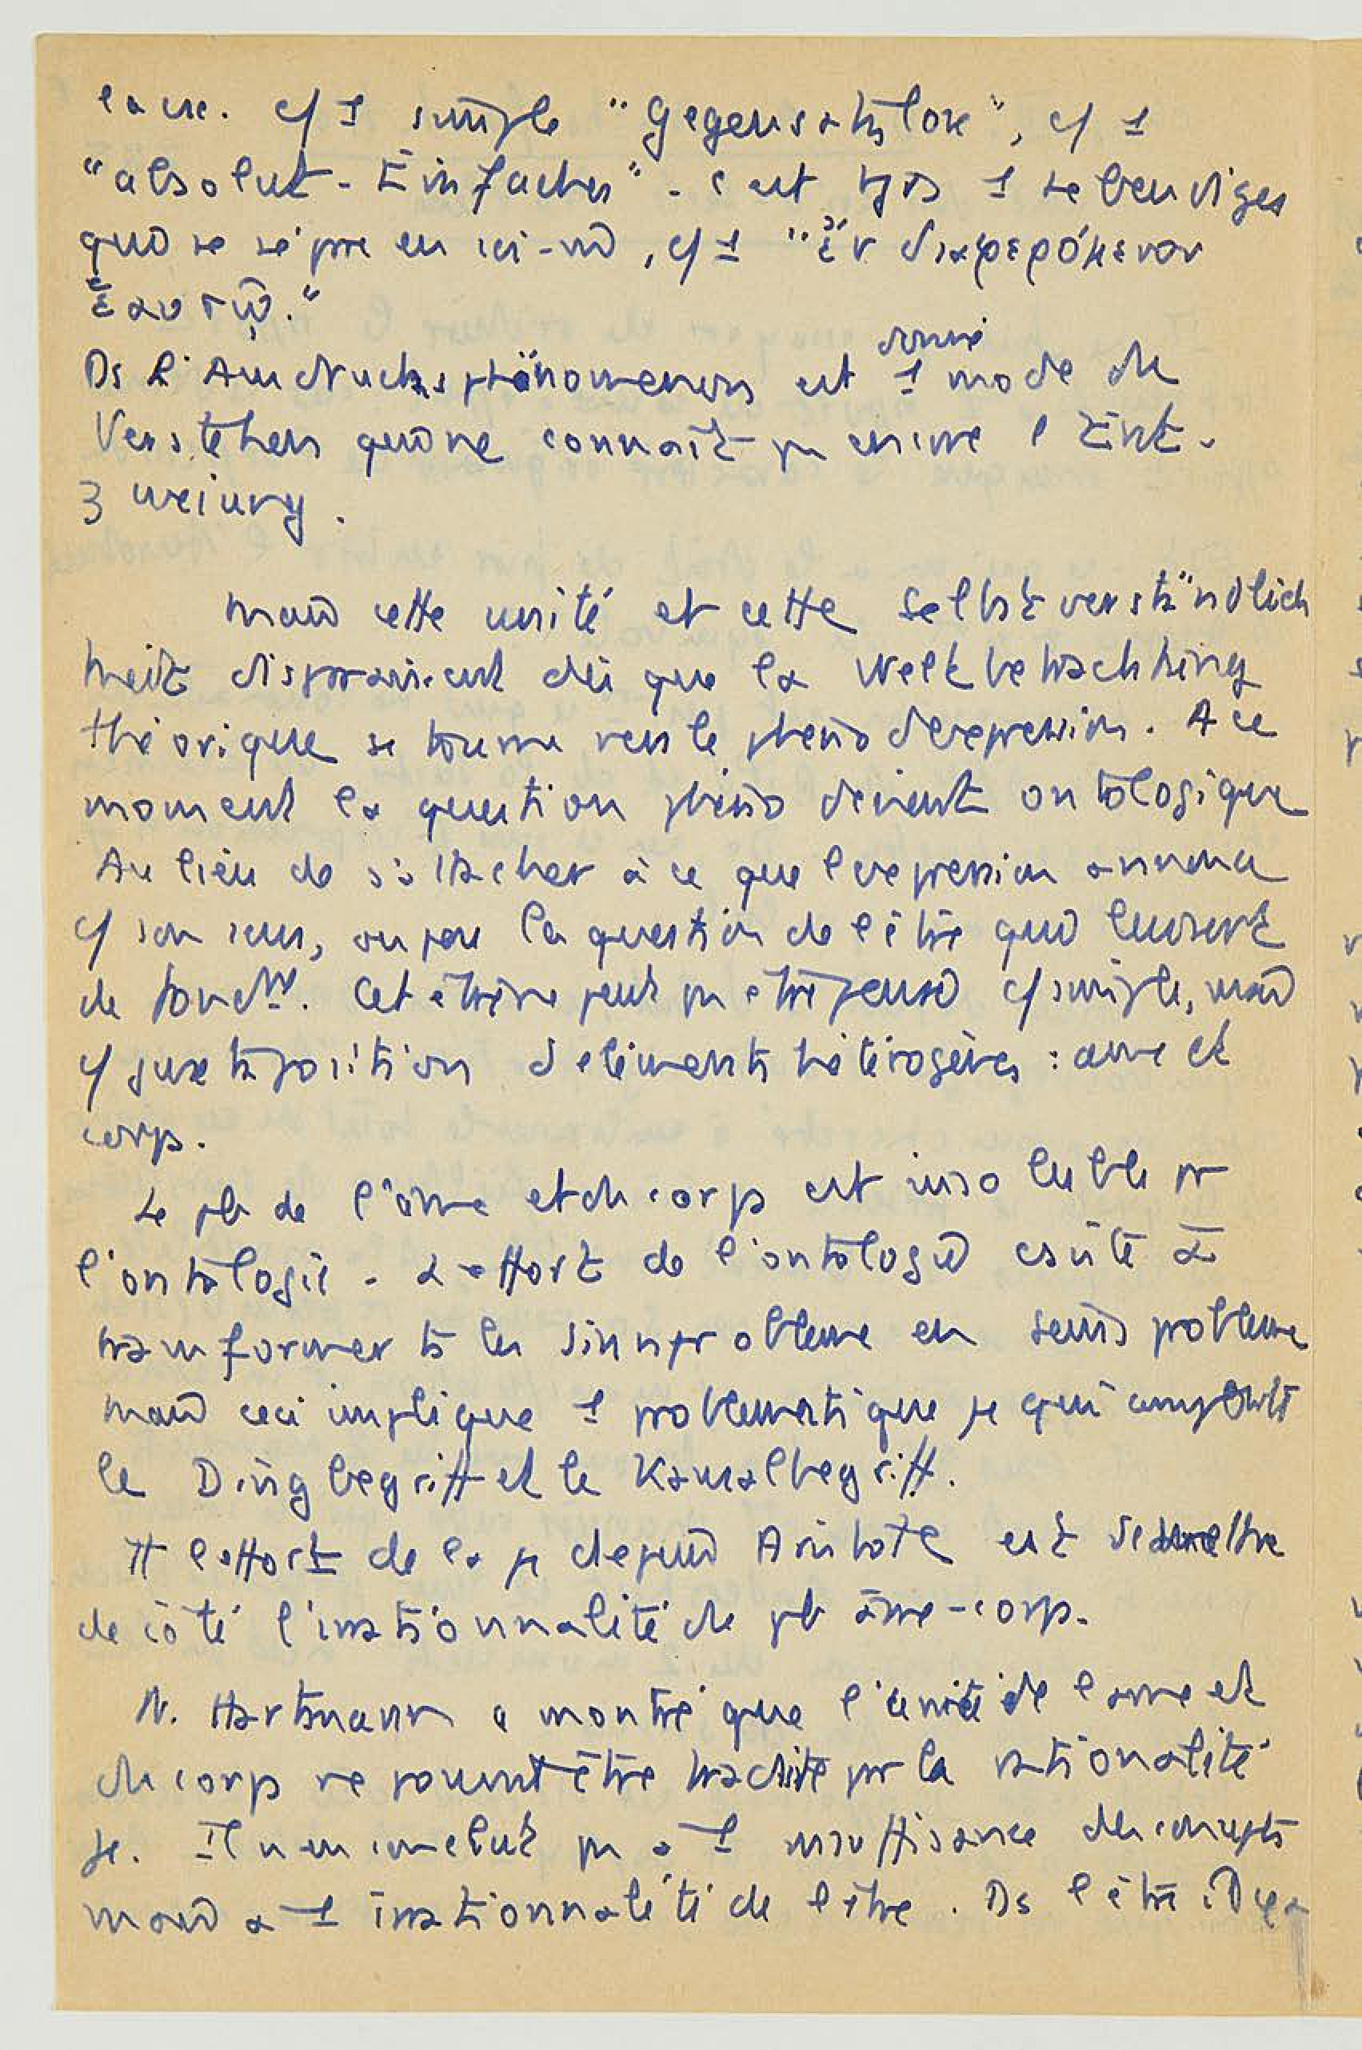 cause. c/ 1 simple "Gegensatzlose", c/ 1
"absolut-Einfaches" - c'est tjrs 1 Lebendiges
qui se sépare en ici-
"ἕν διαφερόμενον
ἑαυτῷ."
Ds l'Ausdrucksphänomenon est donné 1 mode de
Verstehen qui ne connaît pas encore l'Ent-
zweiung.
mais cette unité et cette Selbstverständlich
keit disparaissent dès que la Weltbetrachtung
théorique se tourne vers le phéno d'expression. A ce
moment la question phéno devient ontologique
Au lieu de s'attacher à ce que l'expression annonce
c/ son sens, on pose la question de l'être qui lui sert
de fondt. Cet être ne peut pas être pensé c/ simple, mais
c/ juxtaposition d'éléments hétérogènes : âme et
corps.
Le pb de l'âme et du corps est insoluble pr
l'ontologie. L'effort de l'ontologie csiste à
transformer ts les Sinnprobleme en Seinsprobleme
mais ceci implique 1 problématique φe qui comporte
le Dingbegriff et le Kausalbegriff.
Tt l'effort de la φ depuis Aristote est de mettre
de côté l'irrationnalité du pb âme-corps.
N. Hartmann a montré que l'unité de l'âme et
du corps ne pouvait être traduite par la rationalité
φe. Il n'en conclut pas à 1 insuffisance des concepts
mais à 1 irrationnalité de l'être. Ds l'être il y a